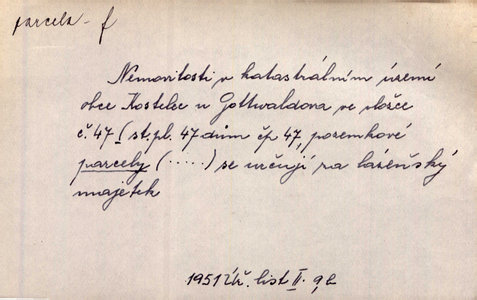 parcela - f
Nemovitosti v katastrálním území
obce Kostelec u Gottwaldova ve vložce
č. 47 (st. pl. 47 dům čp 47, pozemkové
parcely (.....) se určují za lázeňský
majetek
1951 Úř. list II.